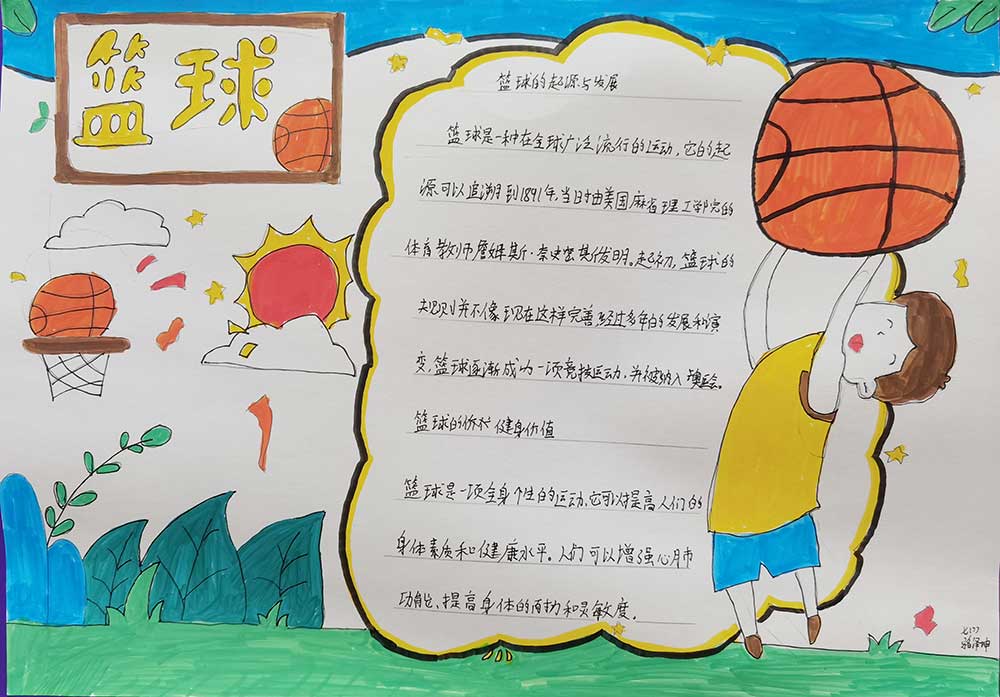 篮球
篮球的起源与发展
篮球是一种在全球广泛流行的运动，它的起
源可以追溯到1891年，当时由美国麻省理工学院的
体育教师詹姆斯·奈史密斯发明。起初，篮球的
规则并不像现在这样完善经过多年的发展和演
变，篮球逐渐成为一项竞技运动，并被纳入奥运会。
篮球的价值健身价值
篮球是一项全身性的运动，它可以提高人们的
身体素质和健康水平。人们可以增强心肺
功能、提高身体的耐力和灵敏度。